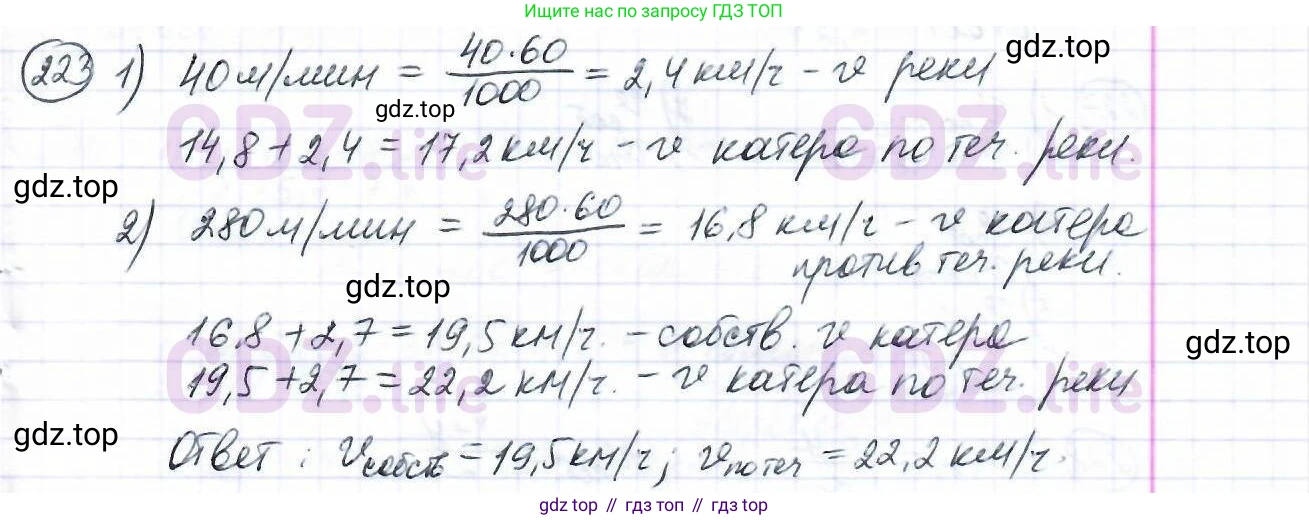 Ищите нас по запросу ГДЗ ТОП
223 1) 40 м/мин = 40·60/1000 = 2,4 км/ч – v реки
gdz.top
gdz.top
GDZ.life
GDZ.life
14,8 + 2,4 = 17,2 км/ч – v катера по теч. реки.
gdz.top
2) 280 м/мин = 280·60/1000 = 16,8 км/ч – v катера
против теч. реки.
gdz.top
16,8 + 2,7 = 19,5 км/ч. – собств. v катера
gdz.top
GDZ.life
GDZ.life
19,5 + 2,7 = 22,2 км/ч. – v катера по теч. реки
gdz.top
Ответ: v собств = 19,5 км/ч; v по теч = 22,2 км/ч.
gdz top // гдз топ // gdz.top